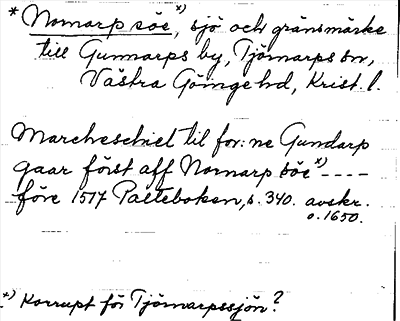 * Nomarp söe *), sjö och gränsmärke
till Gunnarps by, Tjörnarps sn,
Västra Göinge hd, Krist. l.
Marcheschiel til for:ne Gundarp
gaar först aff Nomarp söe *) ----
före 1517 Palteboken, s. 340. avskr.
o. 1650.
*) Korrupt för Tjörnarpssjön?